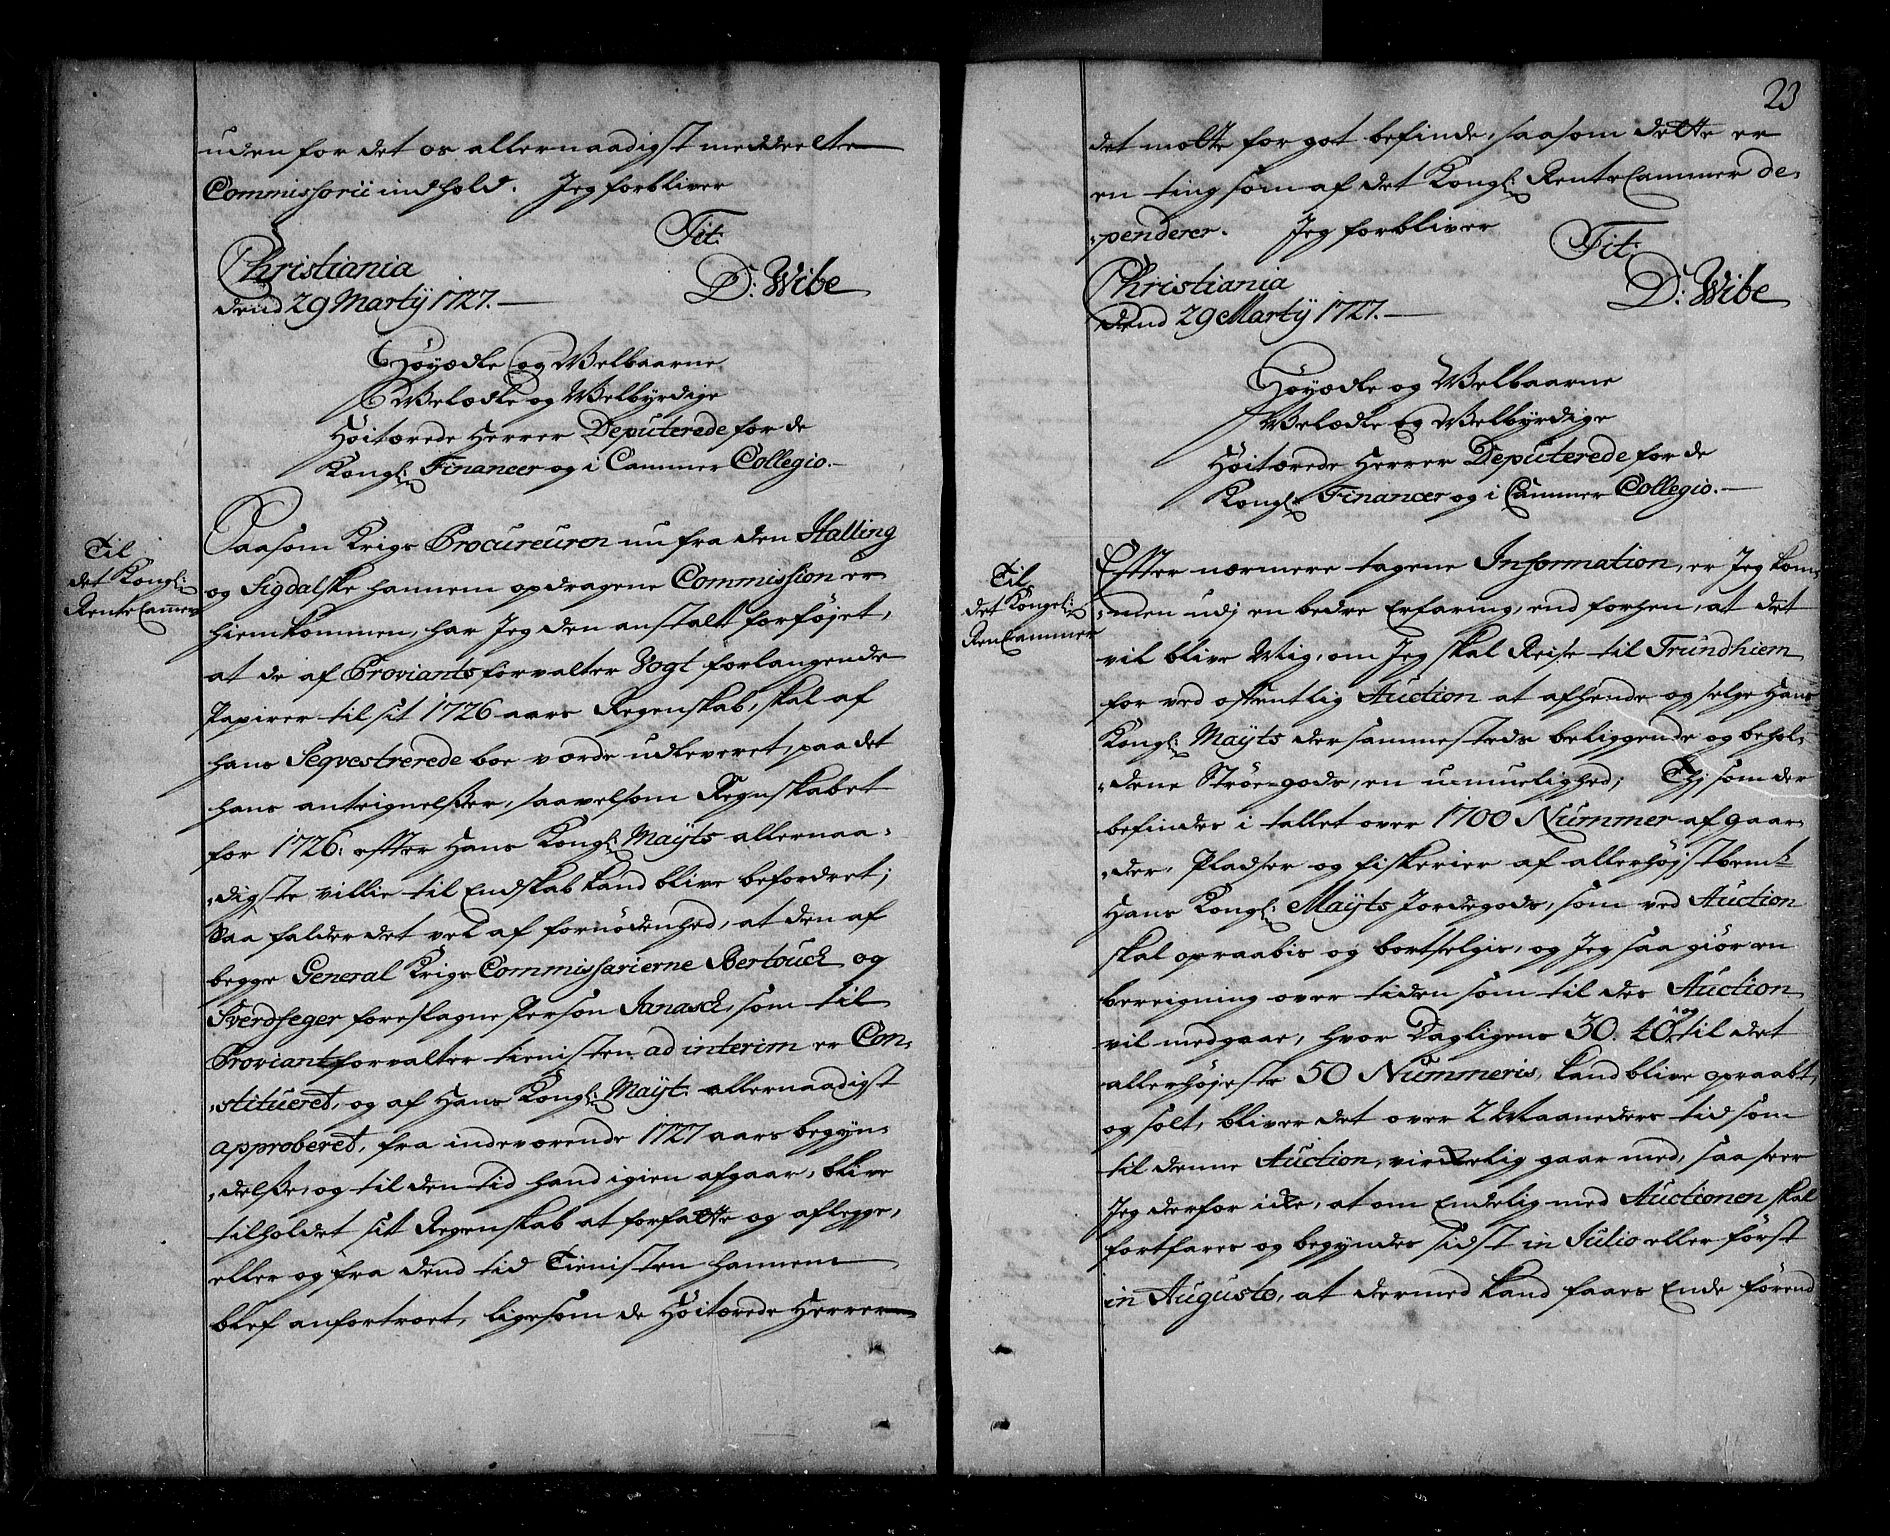 uden for det os allernaadigst meddeelte
Commissorii indhold. Jeg forbliver
Tit:
Christiania
dend 29 Martij 1727.
D: Wibe
Høyædle og Welbaarne
Welædle og Welbyrdige
Høitærede Herrer Deputerede for de
Kongl: Financer og i Cammer Collegio.
Til
det Kongl:
Rente Cammer
Saasom Krigs Procureuren nu fra den Halling
og Sigdalske hannem opdragene Commission er
hiemkommen, har Jeg den anstalt forføjet,
at de af Proviantsforvalter Vogt forlangende
Papirer til sit 1726 aars Regenskab, skal af
hans Seqvestrerede boe vorde udleveret, paa det
hans anteignelßer, saavelsom Regnskabet
for 1726: efter Hans Kongl: Mayts allernaa-
digste villie til Endskab kand blive befordret;
Saa falder det vel af fornødenhed, at den af
begge General Krigs Commissarierne Bertouch og
Sverdfeger foreslagne Person Janasch, som til
Proviantforvalter tienisten ad interim er Con-
stitueret, og af Hans Kongl: Mayt: allernaadigst
approberet, fra indeværende 1727 aars begyn-
delße, og til den tid hand igien afgaar, blive
tilholdet sit Regenskab at forfatte og aflegge,
eller og fra dend tid Tienisten hannem
blef anfortroet, ligesom de Høitærede Herrer
23
det motte for got befinde, saasom dette er
en ting som af det Kongl: Rente Cammer de-
penderer. Jeg forbliver
Tit:
Christiania
dend 29 Martij 1727.
D: Wibe
Høyædle og Welbaarne
Welædle og Welbyrdige
Høitærede Herrer Deputerede for de
Kongl: Financer og i Cammer Collegio.
Til
det Kongel:
RenCammer
Efter nærmere tagene Information, er Jeg kom-
men udj en bedre Erfaring, end forhen, at det
vil blive Mig, om Jeg skal Reise til Trundhiem
for ved offentlig Auction at afhende og selge Hans
Kongl: Mayts der sammesteds beliggende og behol-
dene Strøe-gods, en umuelighed; Thj som der
befindes i tallet over 1700 Nummer af gaar-
der, Pladser og fiskerier af allerhøjstbemt
Hans Kongl: Mayts Jordegods, som ved Auction
skal opraabis og bortselgis, og Jeg saa giør en
bereigning over tiden som til des Auction
vil medgaae, hvor Dagligens 30. 40. og til det
allerhøjeste 50 Nummeris, kand blive opraabt
og solt, bliver det over 2 Maaneders tid som
til denne Auction, virkelig gaar med, saa seer
Jeg derfor ikke, at om Endelig med Auctionen skal
fortfares og begyndes sidst in Julio eller først
in Augusto, at dermed kand faaes Ende førend